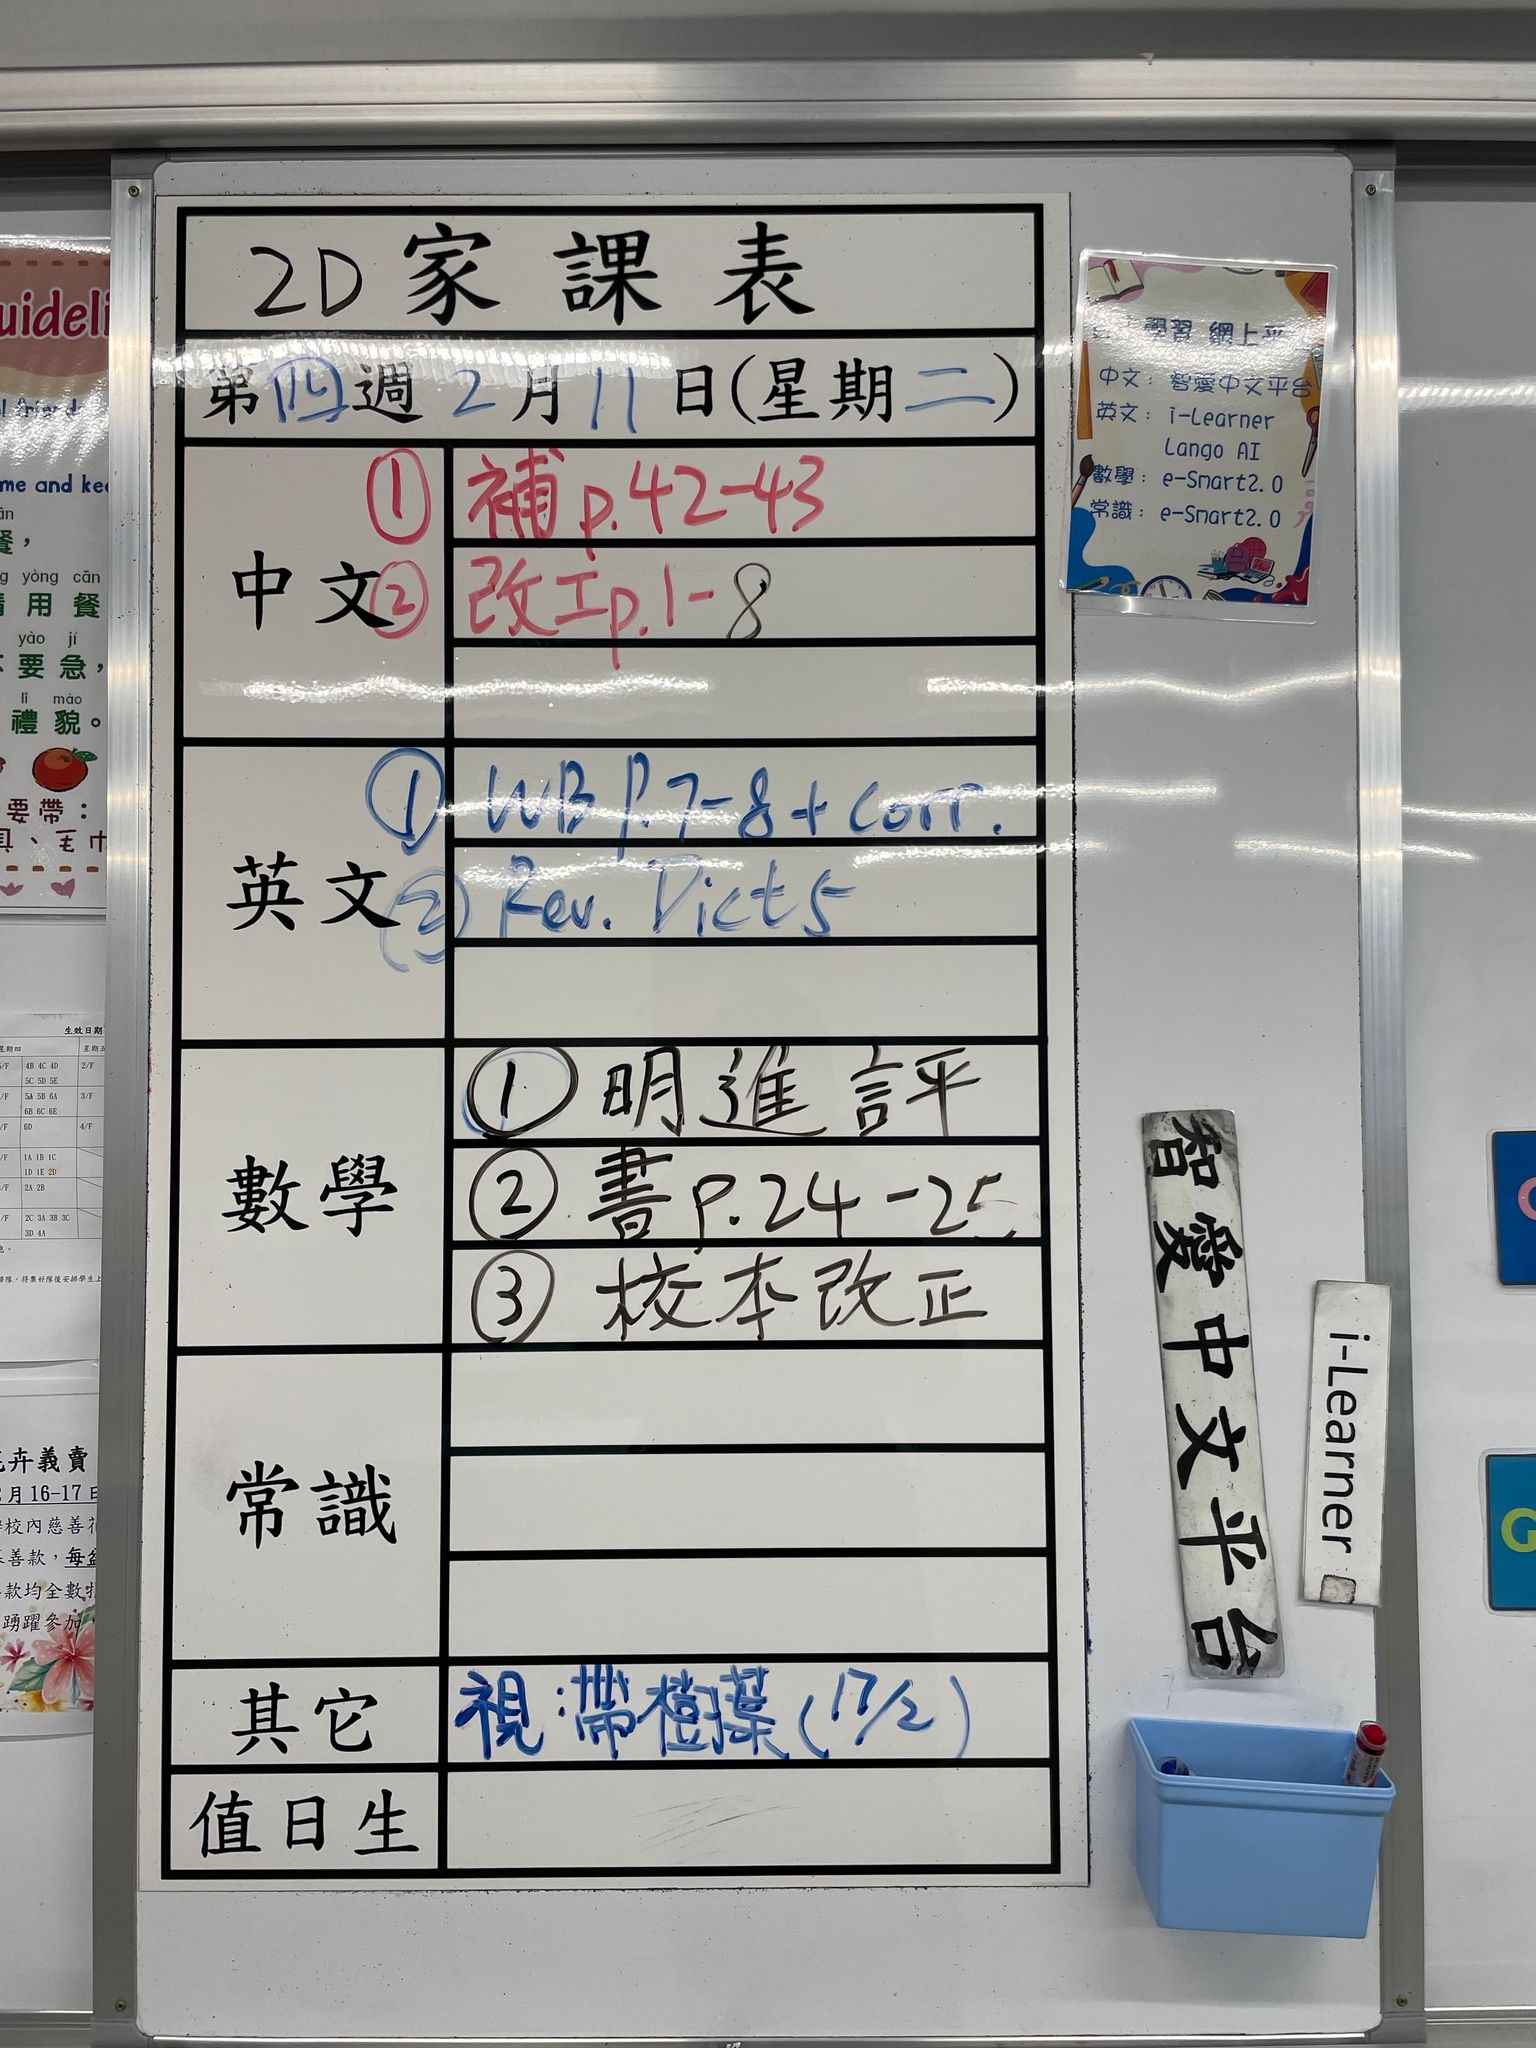 2D 家課表
第四週 2月11日(星期二)
中文
① 補 p.42-43
② 改工p.1-8
英文
① WB P.7-8 + Corr.
② Rev. Dict 5
數學
① 明進評
② 書 p.24-25
③ 校本改正
常識
其它
視:帶樹葉(17/2)
值日生
學習 網上平
中文:智愛中文平台
英文:i-Learner
Lango AI
數學:e-Smart2.0
常識:e-Smart2.0
智愛中文平台
i-Learner
uideli
me and kee
餐,
g yòng cān
請用餐
yào jí
要急,
lǐ mào
禮貌。
要帶:
具、毛巾
生效日期
星期四
4B 4C 4D
2/F
5C 5D 5E
5A 5B 6A
3/F
6B 6C 6E
6D
4/F
1A 1B 1C
1D 1E 2D
2A 2B
2C 3A 3B 3C
3D 4A
卉義賣
月16-17日
校內慈善花
善款,每盆
款均全數
踴躍參加